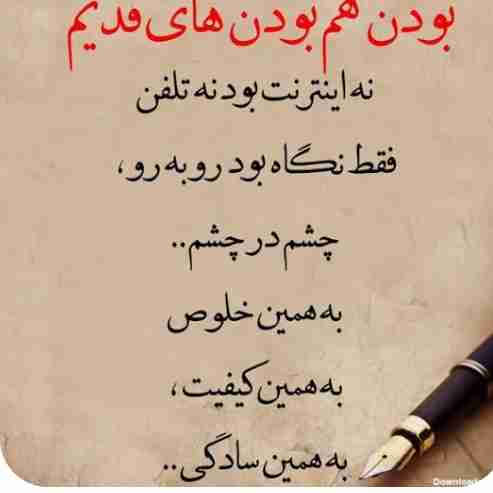 بودن هم بودن های قدیم
نه اینترنت بود نه تلفن
فقط نگاه بود رو به رو،
چشم در چشم..
به همین خلوص
به همین کیفیت،
به همین سادگی..
Download